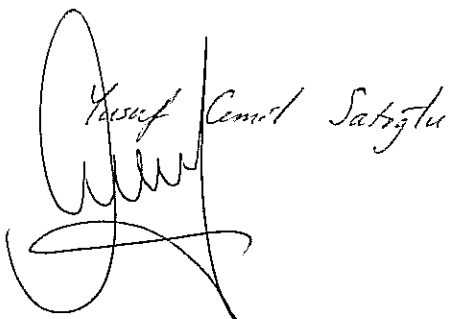 Yusuf Cemil Satoğlu